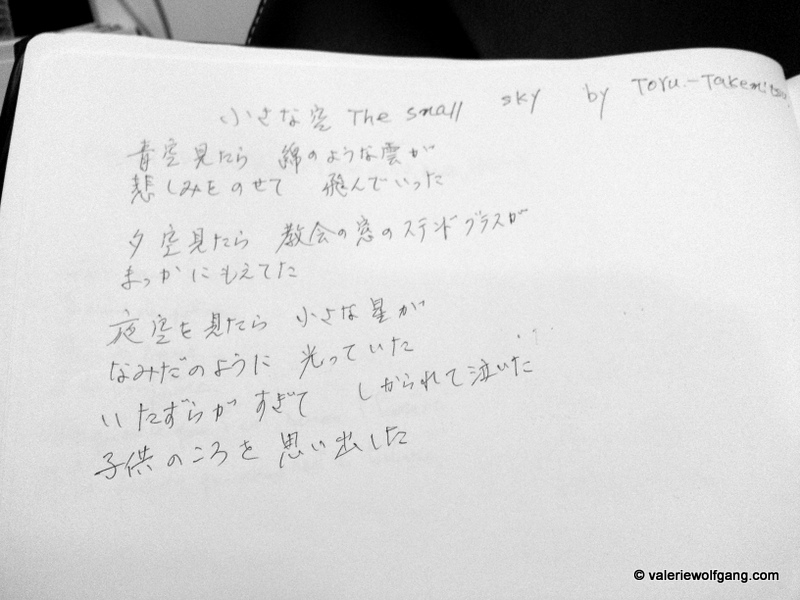 小さな空 The small sky by Toru-Takemitsu
青空見たら 綿のような雲が
悲しみをのせて 飛んでいった
夕空見たら 教会の窓のステンドグラスが
まっかにもえてた
夜空を見たら 小さな星が
なみだのように 光っていた
いたずらがすぎて しかられて泣いた
子供のころを思い出した
© valeriewolfgang.com